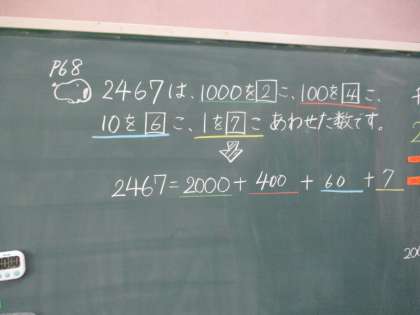 P68
2467は、1000を2こ、100を4こ、
10を6こ、1を7こ あわせた数です。
2467=2000+400+60+7